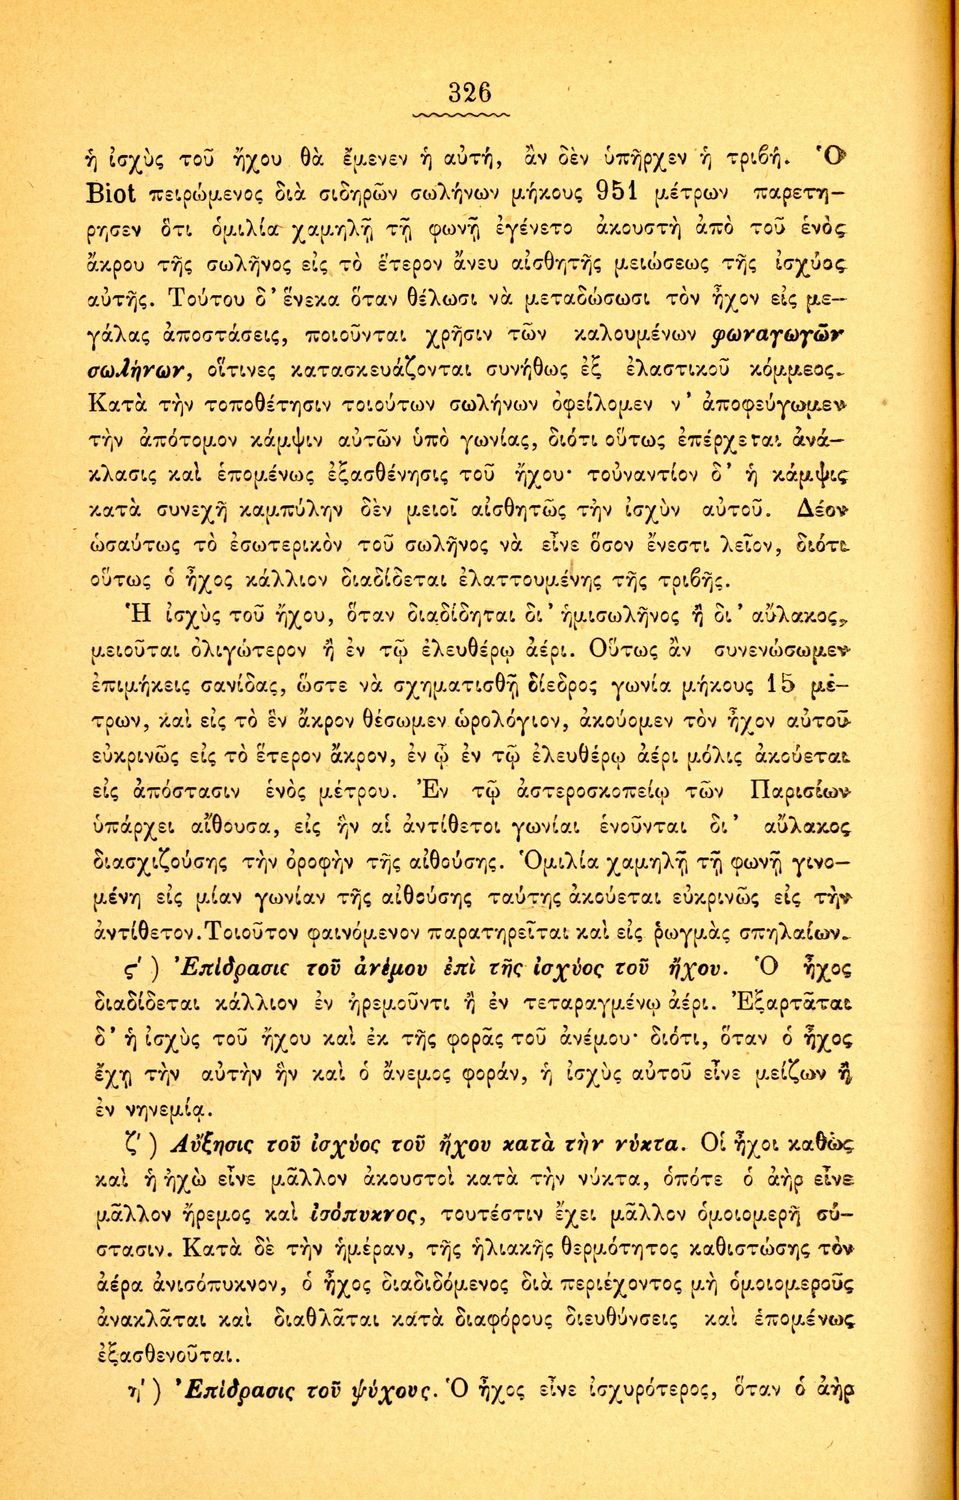 326
ἡ ἰσχὺς τοῦ ἤχου θὰ ἔμενεν ἡ αὐτή, ἂν δὲν ὑπῆρχεν ἡ τριβή. Ὁ
Biot πειρώμενος διὰ σιδηρῶν σωλήνων μήκους 951 μέτρων παρετή-
ρησεν ὅτι ὁμιλία χαμηλῇ τῇ φωνῇ ἐγένετο ἀκουστὴ ἀπὸ τοῦ ἑνὸς
ἄκρου τῆς σωλῆνος εἰς τὸ ἕτερον ἄνευ αἰσθητῆς μειώσεως τῆς ἰσχύος
αὐτῆς. Τούτου δ' ἕνεκα ὅταν θέλωσι νὰ μεταδώσωσι τὸν ἦχον εἰς με-
γάλας ἀποστάσεις, ποιοῦνται χρῆσιν τῶν καλουμένων φωναγωγῶν
σωλήνων, οἵτινες κατασκευάζονται συνήθως ἐξ ἐλαστικοῦ κόμμεος.
Κατὰ τὴν τοποθέτησιν τοιούτων σωλήνων ὀφείλομεν ν' ἀποφεύγωμεν
τὴν ἀπότομον κάμψιν αὐτῶν ὑπὸ γωνίας, διότι οὕτως ἐπέρχεται ἀνά-
κλασις καὶ ἑπομένως ἐξασθένησις τοῦ ἤχου· τοὐναντίον δ' ἡ κάμψις
κατὰ συνεχῆ καμπύλην δὲν μειοῖ αἰσθητῶς τὴν ἰσχὺν αὐτοῦ. Δέον
ὡσαύτως τὸ ἐσωτερικὸν τοῦ σωλῆνος νὰ εἶνε ὅσον ἔνεστι λεῖον, διότι
οὕτως ὁ ἦχος κάλλιον διαδίδεται ἐλαττουμένης τῆς τριβῆς.
Ἡ ἰσχὺς τοῦ ἤχου, ὅταν διαδίδηται δι' ἡμισωλῆνος ἢ δι' αὔλακος,
μειοῦται ὀλιγώτερον ἢ ἐν τῷ ἐλευθέρῳ ἀέρι. Οὕτως ἂν συνενώσωμεν
ἐπιμήκεις σανίδας, ὥστε νὰ σχηματισθῇ δίεδρος γωνία μήκους 15 μέ-
τρων, καὶ εἰς τὸ ἓν ἄκρον θέσωμεν ὡρολόγιον, ἀκούομεν τὸν ἦχον αὐτοῦ
εὐκρινῶς εἰς τὸ ἕτερον ἄκρον, ἐν ᾧ ἐν τῷ ἐλευθέρῳ ἀέρι μόλις ἀκούεται
εἰς ἀπόστασιν ἑνὸς μέτρου. Ἐν τῷ ἀστεροσκοπείῳ τῶν Παρισίων
ὑπάρχει αἴθουσα, εἰς ἣν αἱ ἀντίθετοι γωνίαι ἑνοῦνται δι' αὔλακος
διασχιζούσης τὴν ὀροφὴν τῆς αἰθούσης. Ὁμιλία χαμηλῇ τῇ φωνῇ γινο-
μένη εἰς μίαν γωνίαν τῆς αἰθούσης ταύτης ἀκούεται εὐκρινῶς εἰς τὴν
ἀντίθετον. Τοιοῦτον φαινόμενον παρατηρεῖται καὶ εἰς ῥωγμὰς σπηλαίων.
ϛ') Ἐπίδρασις τοῦ ἀνέμου ἐπὶ τῆς ἰσχύος τοῦ ἤχου. Ὁ ἦχος
διαδίδεται κάλλιον ἐν ἠρεμοῦντι ἢ ἐν τεταραγμένῳ ἀέρι. Ἐξαρτᾶται
δ' ἡ ἰσχὺς τοῦ ἤχου καὶ ἐκ τῆς φορᾶς τοῦ ἀνέμου· διότι, ὅταν ὁ ἦχος
ἔχῃ τὴν αὐτὴν ἣν καὶ ὁ ἄνεμος φοράν, ἡ ἰσχὺς αὐτοῦ εἶνε μείζων ἢ
ἐν νηνεμίᾳ.
ζ') Αὔξησις τοῦ ἰσχύος τοῦ ἤχου κατὰ τὴν νύκτα. Οἱ ἦχοι καθὼς
καὶ ἡ ἠχὼ εἶνε μᾶλλον ἀκουστοὶ κατὰ τὴν νύκτα, ὁπότε ὁ ἀὴρ εἶνε
μᾶλλον ἤρεμος καὶ ἰσόπυκνος, τουτέστιν ἔχει μᾶλλον ὁμοιομερῆ σύ-
στασιν. Κατὰ δὲ τὴν ἡμέραν, τῆς ἡλιακῆς θερμότητος καθιστώσης τὸν
ἀέρα ἀνισόπυκνον, ὁ ἦχος διαδιδόμενος διὰ περιέχοντος μὴ ὁμοιομεροῦς
ἀνακλᾶται καὶ διαθλᾶται κατὰ διαφόρους διευθύνσεις καὶ ἑπομένως
ἐξασθενοῦται.
η') Ἐπίδρασις τοῦ ψύχους. Ὁ ἦχος εἶνε ἰσχυρότερος, ὅταν ὁ ἀὴρ